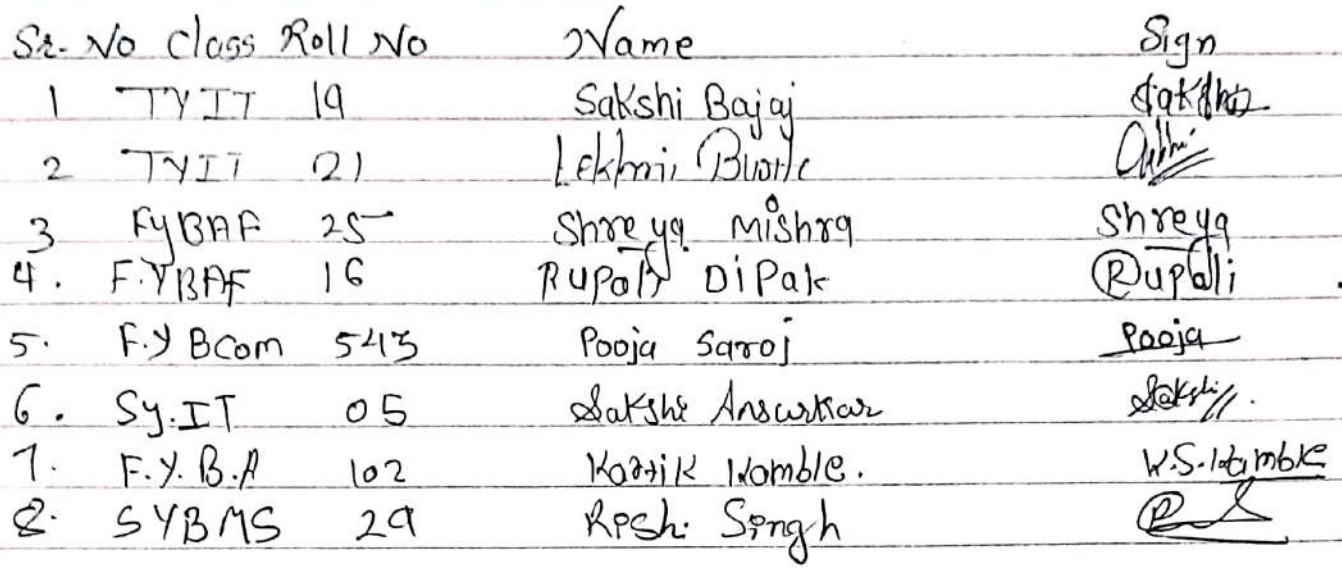 Sr. No Class Roll No Name Sign
1 TYIT 19 Sakshi Bajaj Sakshi
2 TYIT 21
3 FyBAF 25 Shreya Mishra Shreya
4. F.YBAF 16 Rupali DiPak Rupali
5. F.Y BCom 543 Pooja Saroj Pooja
6. Sy.IT 05 Sakshi Ansurkar Sakshi
7. F.Y.B.A 102 Kartik Kamble. K.S.Kamble
8. SYBMS 29 Rishi Singh